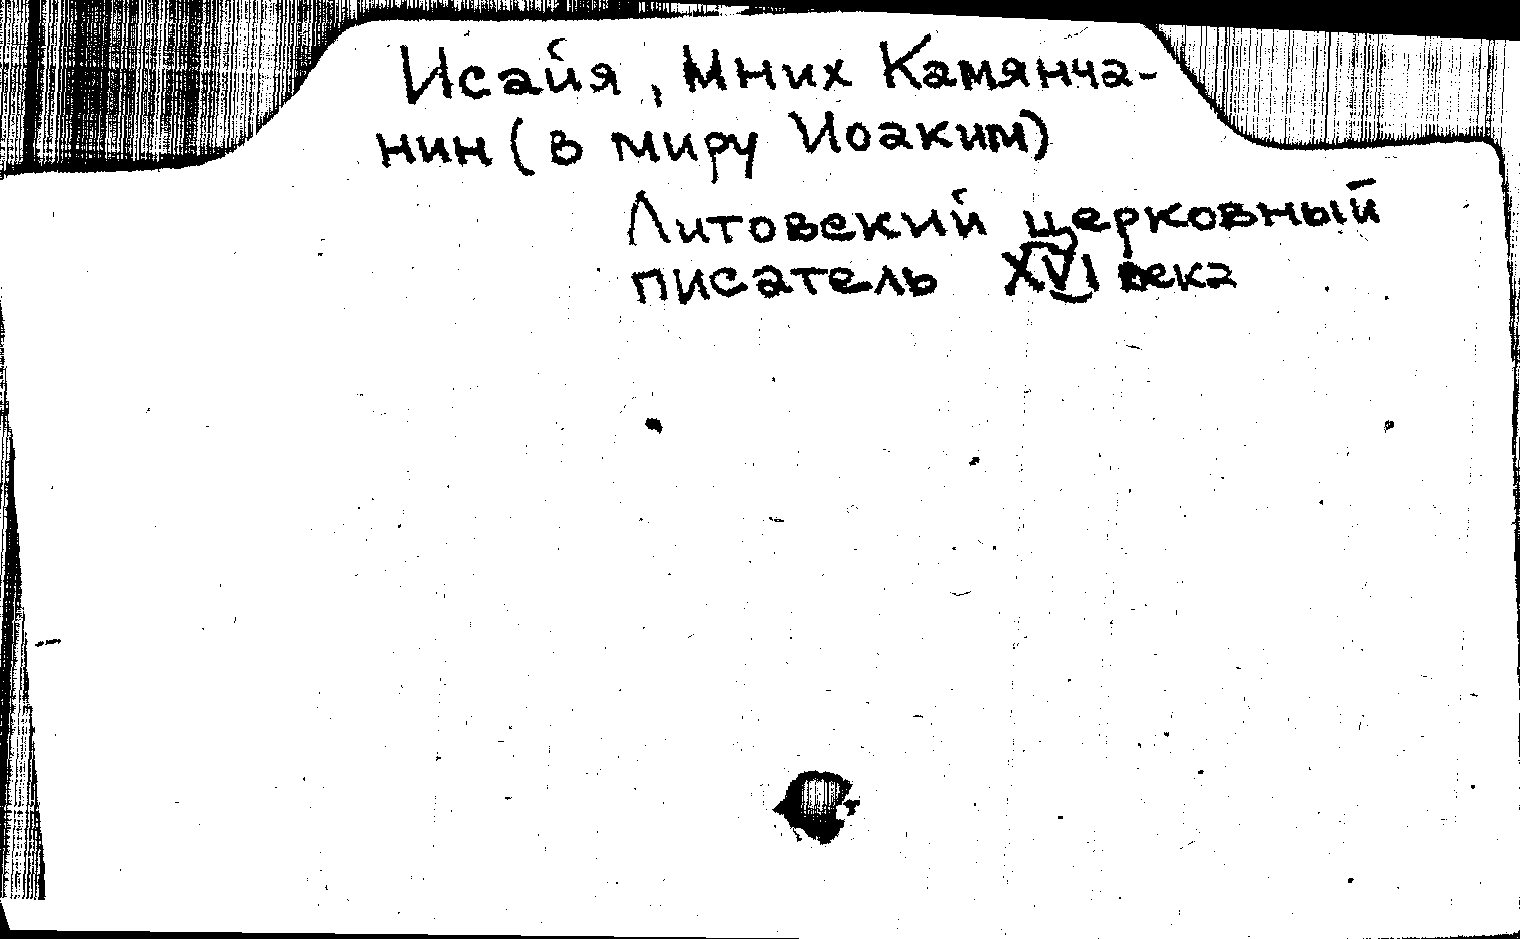 Исайя, мних Камянча-
нин (в миру Иоаким)
Литовский церковный
писатель XVI века